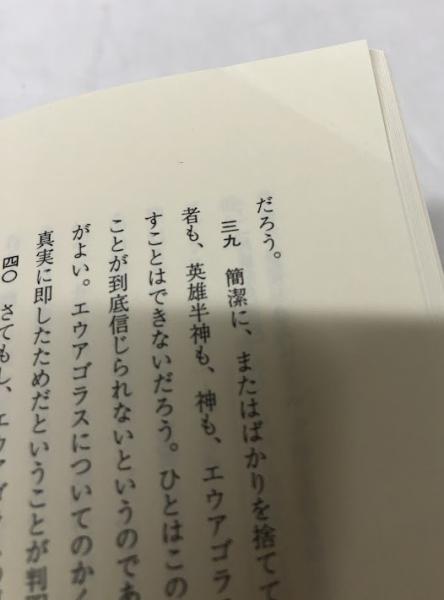 だろう。
三九 簡潔に、またはばかりを捨てて
者も、英雄半神も、神も、エウアゴラス
すことはできないだろう。ひとはこの
ことが到底信じられないというのであ
がよい。エウアゴラスについてのかく
真実に即したためだということが判
四〇 さてもし、エウアゴラ